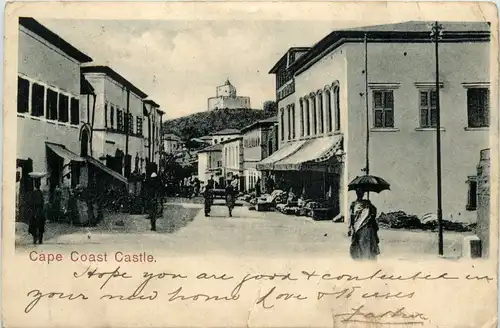 Cape Coast Castle.
Hope you are good & contented in
your new home Love & Kisses
Father